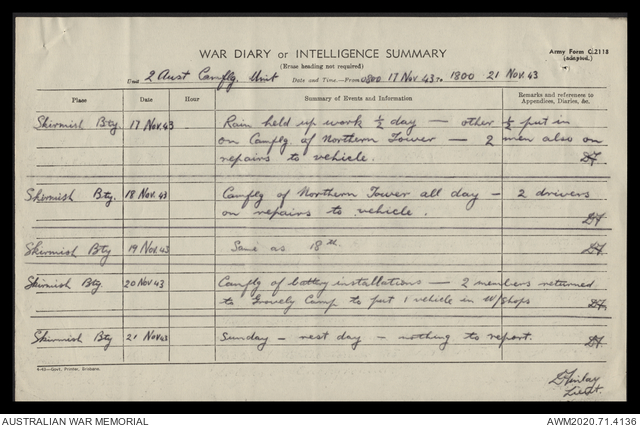 WAR DIARY or INTELLIGENCE SUMMARY
(Erase heading not required)
Army Form C.2118
(adapted.)
Unit 2 Aust Camflg. Unit Date and Time.—From 0800 17 Nov 43 To 1800 21 Nov. 43
Place Date Hour Summary of Events and Information Remarks and references to
Appendices, Diaries, &c.
Skirmish Bty 17 Nov. 43 Rain held up work ½ day — other ½ put in
on Camflg. of Northern Tower — 2 men also on
repairs to vehicle. DF
Skirmish Bty. 18 Nov. 43 Camflg of Northern Tower all day — 2 drivers
on repairs to vehicle. DF
Skirmish Bty 19 Nov. 43 Same as 18th. DF
Skirmish Bty 20 Nov 43 Camflg of battery installations — 2 members returned
to Camp to put 1 vehicle in W/Shops DF
Skirmish Bty 21 Nov 43 Sunday — rest day — nothing to report. DF
Govt. Printer, Brisbane.
D Finlay
Lieut.
AUSTRALIAN WAR MEMORIAL AWM2020.71.4136